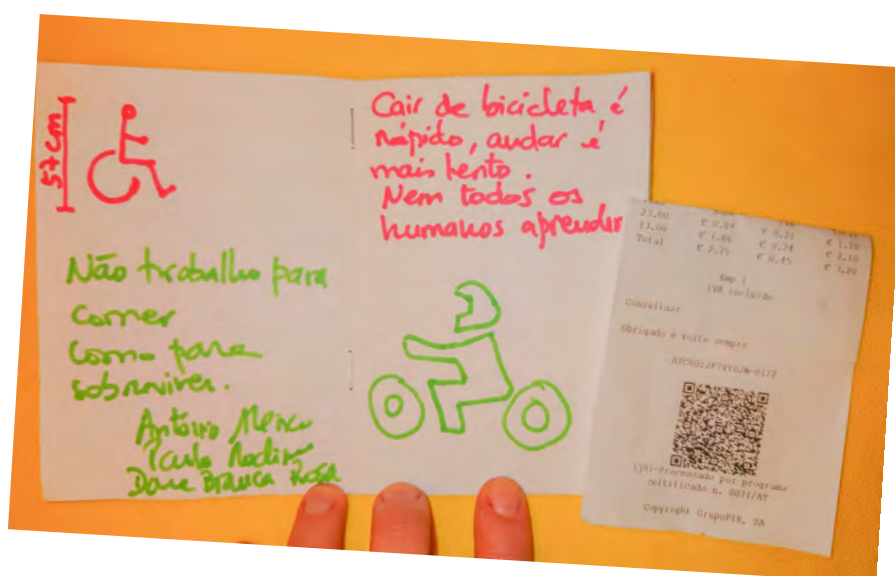 57cm
Não trabalho para
comer
como para
sobreviver.
António
Paulo
Dave Branca Rosa
Cair de bicicleta é
rápido, andar é
mais lento.
Nem todos os
humanos aprender
23.00 € 0.89 € 0.21 € 1.10
13.00 € 1.86 € 0.24 € 2.10
Total € 2.75 € 0.45 € 3.20
Emp 1
IVA incluido
Consultas:
Obrigado e volte sempre
-Processado por programa
certificado n. /AT
Copyright GrupoPIE, SA